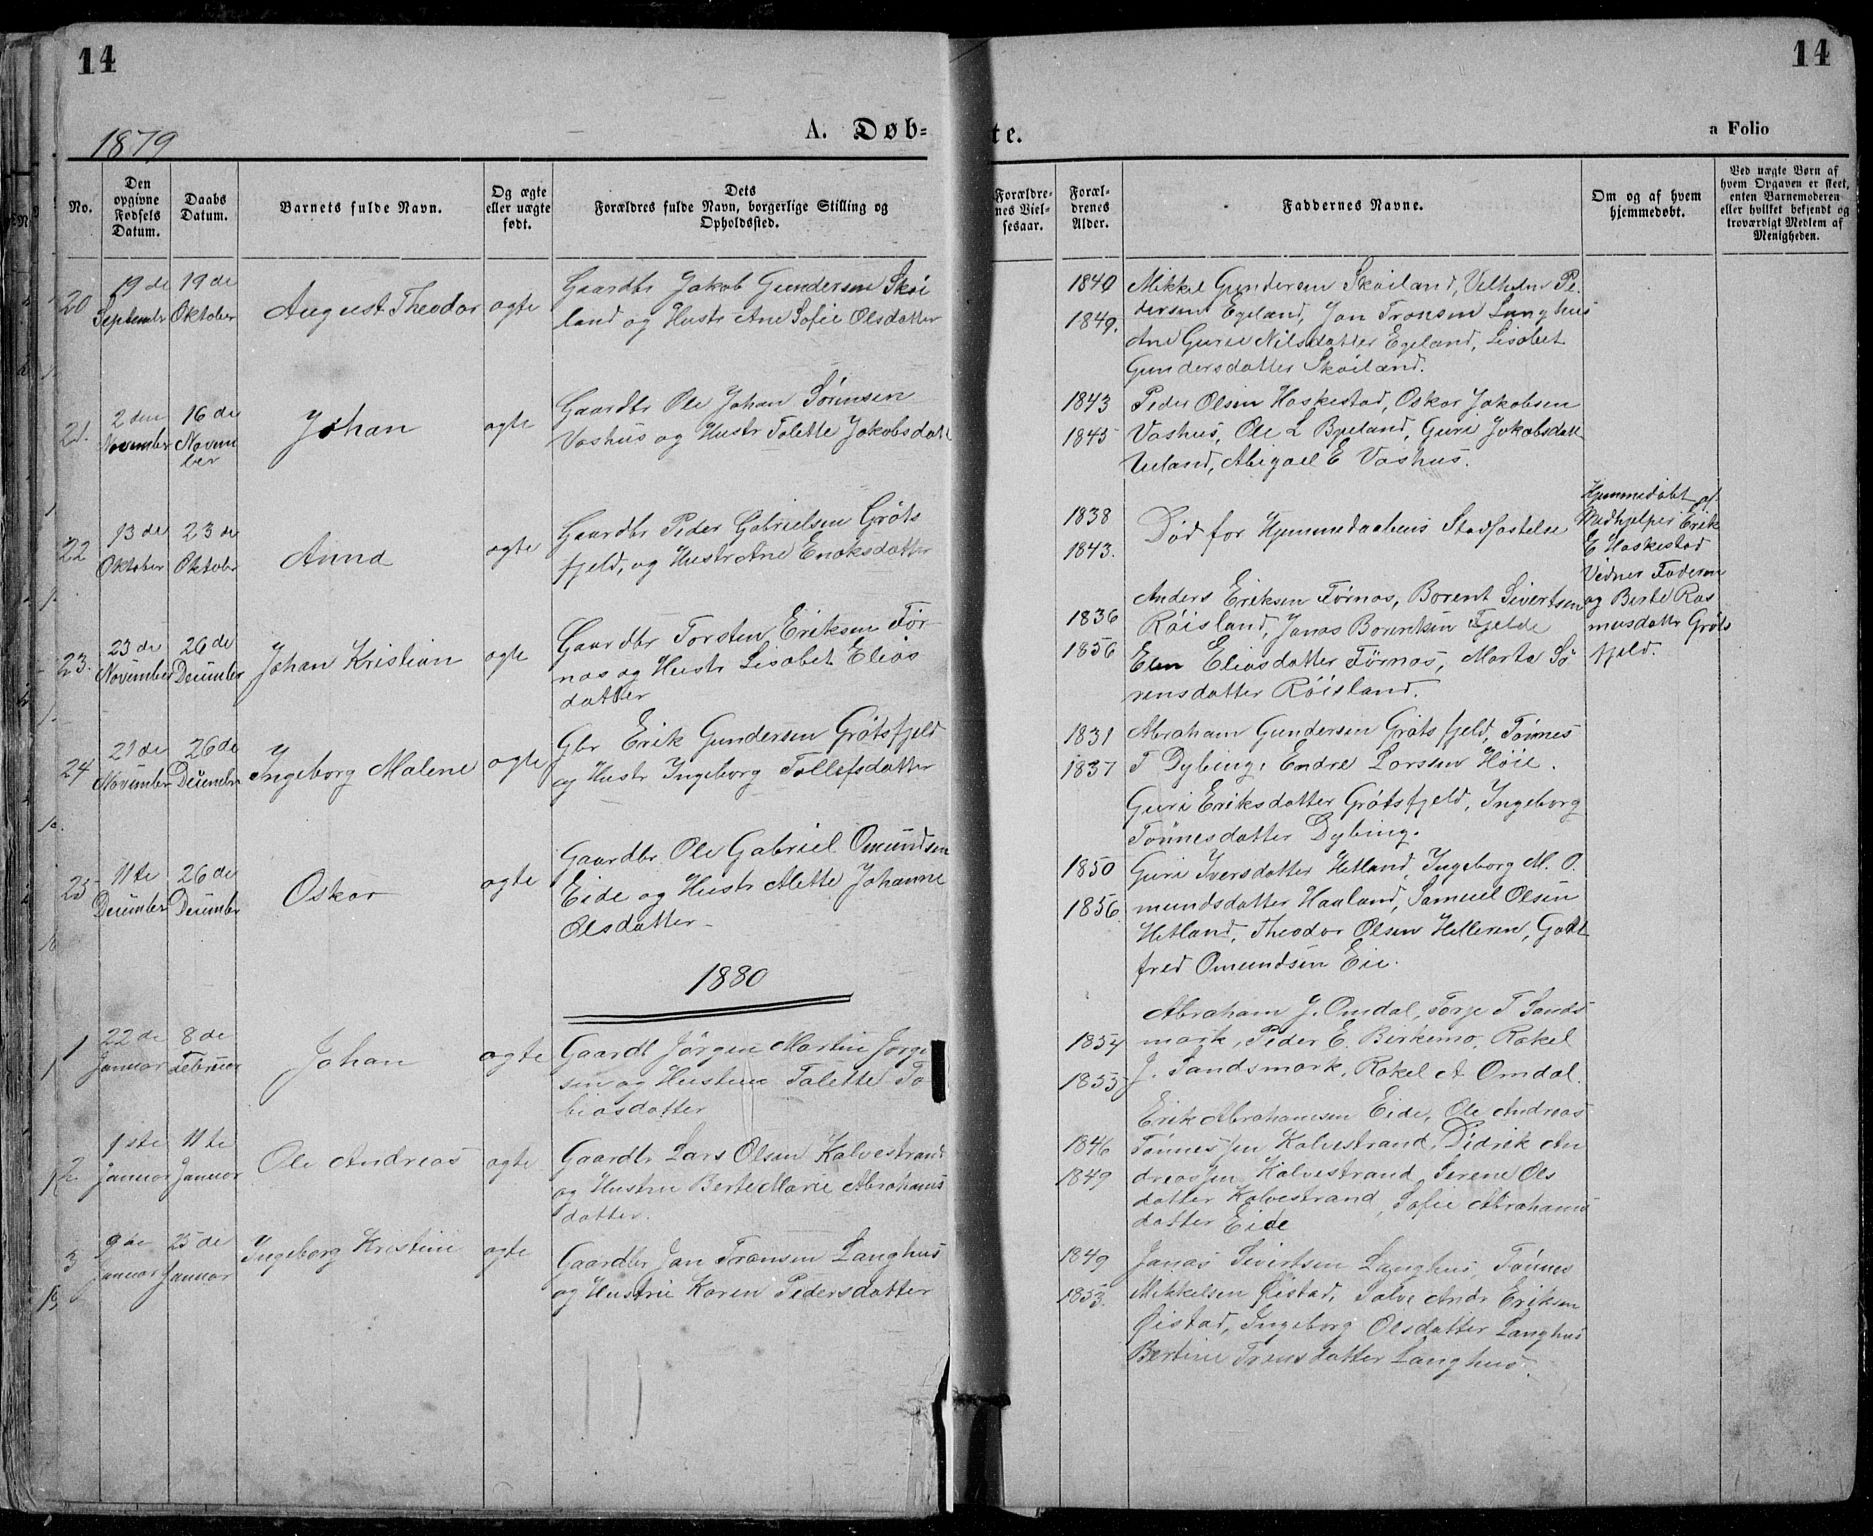 14
14
1879
A. Døb-
te.
a Folio
No.
Den opgivne Fødsels Datum.
Daabs Datum.
Barnets fulde Navn.
Og ægte eller uægte født.
Dets Forældres fulde Navn, borgerlige Stilling og Opholdssted.
Forældre-nes Viel-sesaar.
Foræl-drenes Alder.
Faddernes Navne.
Om og af hvem hjemmedøbt.
Ved uægte Børn af hvem Opgaven er skeet, enten Barnemoderen eller hvilket bekjendt og troværdigt Medlem af Menigheden.
20
19 de September
19 de Oktober
August Theodor
ægte
Gaardbr Jakob Gundersen Skøi
land og Hustr Ane Sofie Olsdatter
1840
1849.
Mikkel Gundersen Skøiland, Vilhelm Pe
dersen Egeland, Jan Tronsen Langhus
Ane Gurie Nilsdatter Egeland, Lisabet
Gundersdatter Skøiland.
21.
2 den November
16 de Novem
ber
Johan
ægte
Gaardbr Ole Johan Sørensen
Vashus og Hustr Talette Jakobsdatt
1843
1845
Peder Olsen Haskestad, Oskar Jakobsen
Vashus, Ole L Byeland, Guri Jakobsdatt
Ueland, Abigael E Vashus.
22
13 de Oktober
23 de Oktober
Anna
ægte
Gaardbr Peder Gabrielsen Gröts
fjeld, og Hustr Ane Enoksdatter
1838
1843.
Död for Hjemmedaabens Stadfæstelse
Hjemmedøbt af
Medhjelper Erik
E Haskestad
Vidner Faderen
og Berte Ras
musdatter Gröts
fjeld.
23.
23 de November
26 de Desember
Johan Kristian
ægte
Gaardbr Torsten Eriksen Tør-
nas og Hustr Lisabet Elias
datter
1836
1856
Anders Eriksen Førnas, Borent Sivertsen
Røisland, Jonas Borentsen Fjelde
Elen Eliasdatter Førnas, Marta Sø
rensdatter Røisland.
24
21 de November
26 de Desember
Ingeborg Malene
ægte
Gbr Erik Gundersen Grötsfjeld
og Hustr Ingeborg Tollefsdatter
1831
1837
Abraham Gundersen Gröts fjeld, Tønnes
T Dybing, Endre Larssen Høie.
Guri Eriksdatter Grötsfjeld, Ingeborg
Tønnesdatter Dybing.
25
11 te Desember
26 de Desember
Oskar
ægte
Gaardbr Ole Gabriel Omundsen
Eide og Hustr Alette Johanne
Olsdatter
1850
1856
Guri Iversdatter Hetland, Ingeborg M. O.
mundsdatter Haaland, Samuel Olsen
Hetland, Theodor Olsen Helleren, Gott
fred Omundsen Eie.
1880
1
22 de Januar
8 de Februar
Johan
ægte
Gaardb Jörgen Martin Jørge
sen og Hustru Talette To
biasdatter
1854
1855
Abraham J. Omdal, Torje T Sands
mark, Peder E. Birkemo, Rakel
J. Sandsmark, Rakel A Omdal.
2
1 ste Januar
11 te Januar
Ole Andreas
ægte
Gaardbr Lars Olsen Kalvestrand
og Hustru Berte Marie Abrahams
datter.
1846
1849
Erik Abrahamsen Eide, Ole Andreas
Tønnessen Kalvestrand, Didrik An
dreassen Kalvestrand, Serene Ols
datter Kalvestrand, Sofie Abrahams
datter Eide
3
9 de Januar
25 de Januar
Ingeborg Kristine
ægte
Gaardbr Jan Tronsen Langhus
og Hustru Karen Pedersdatter
1849
1853.
Jonas Sivertsen Langhus, Tønnes
Mikkelsen Øistad, Salve Andr Eriksen
Øistad, Ingeborg Olsdatter Langhus
Bertine Tronsdatter Langhus.